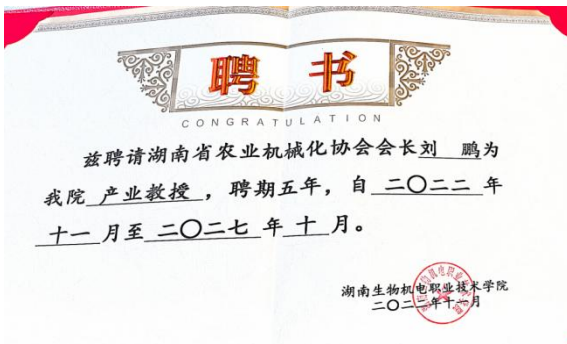 聘书
CONGRATULATION
兹聘请湖南省农业机械化协会会长刘 鹏为
我院 产业教授 ，聘期五年，自 二〇二二 年
十一 月至 二〇二七 年 十 月。
湖南生物机电职业技术学院
二〇二二年十一月